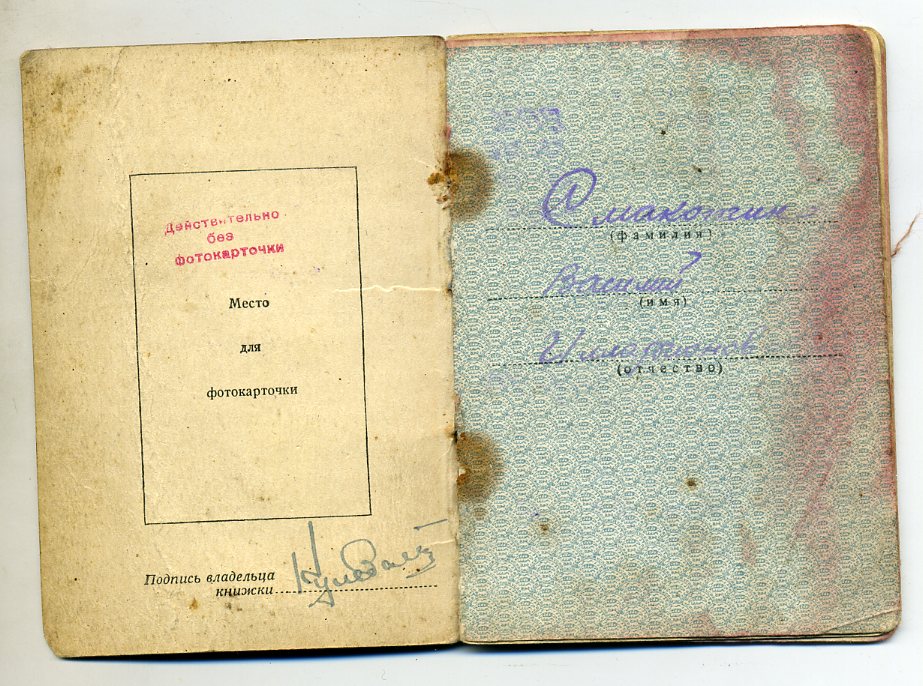 Действительно
без
фотокарточки
Место
для
фотокарточки
Подпись владельца
книжки
Смакотин
(фамилия)
Василий
(имя)
(отчество)